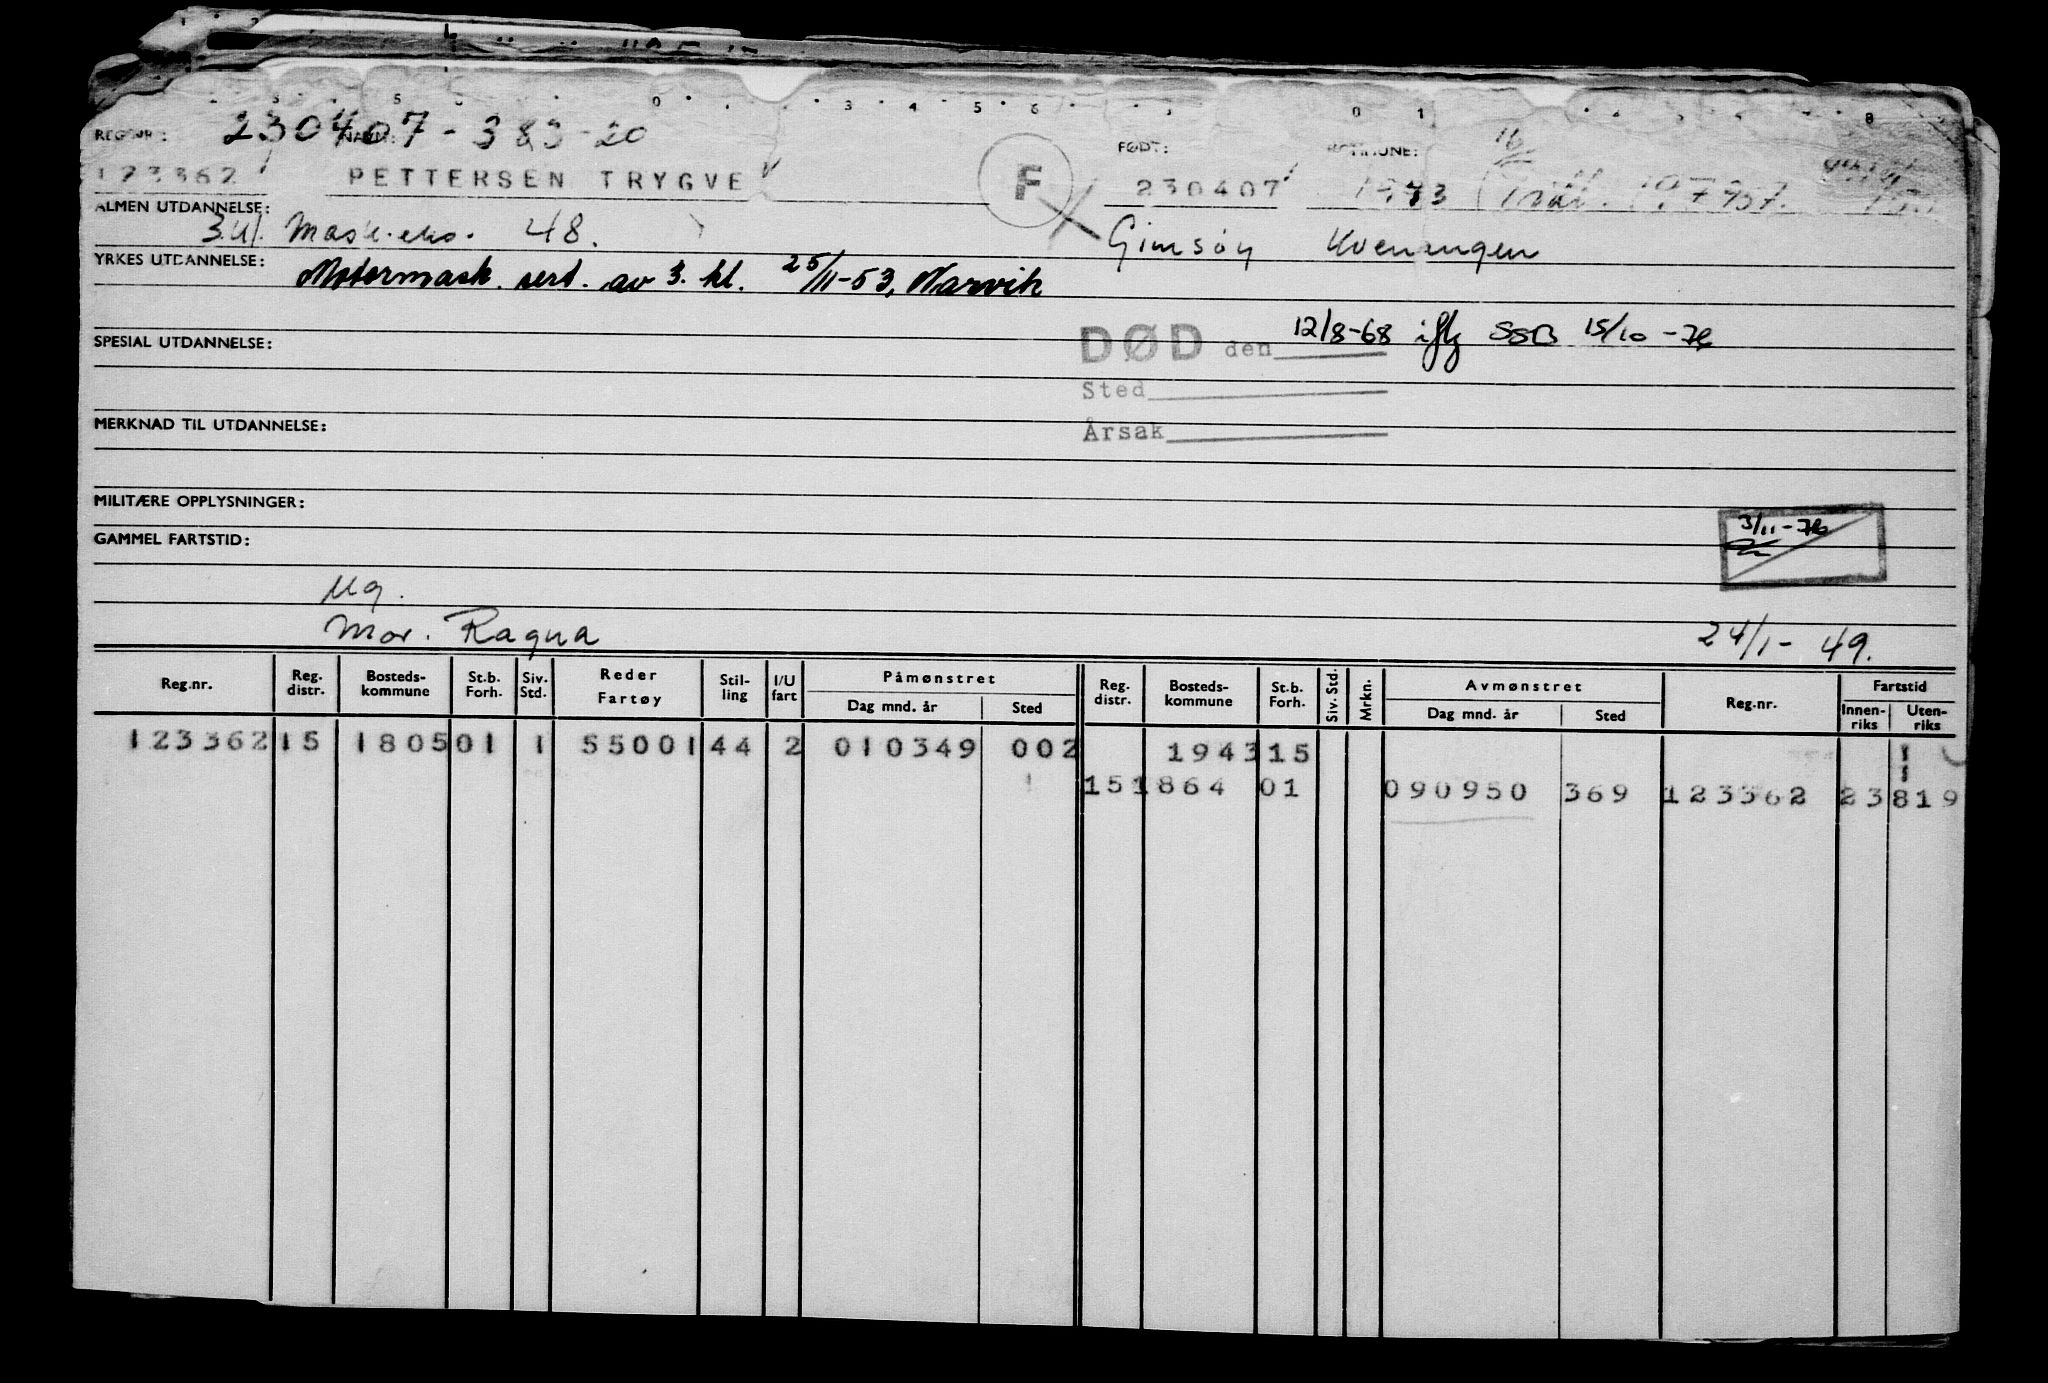 REG.NR.: 230407 - 383-20 NAVN: FØDT: KOMMUNE: 16
123362 PETTERSEN TRYGVE F 230407 1943
ALMEN UTDANNELSE: 3.kl. Mask.eks. 48. Gimsøy Kvenangen
YRKES UTDANNELSE: Motormask. sert. av 3. kl. 25/11-53, Narvik
DØD den 12/8-68 iflg SSB 15/10-76
SPESIAL UTDANNELSE:
Sted
MERKNAD TIL UTDANNELSE:
Årsak
MILITÆRE OPPLYSNINGER:
3/11-76
GAMMEL FARTSTID:
Ug.
Mor. Ragna 24/1-49.
Reg.nr. Reg. distr. Bosteds-kommune St.b. Forh. Siv. Std. Reder Fartøy Stil-ling I/U fart Påmønstret Dag mnd. år Sted Reg. distr. Bosteds-kommune St.b. Forh. Siv. Std. Mrkn. Avmønstret Dag mnd. år Sted Reg.nr. Fartstid Innen-riks Uten-riks
123362 15 1805 01 1 55001 44 2 010349 002 1943 15
15 1864 01 090950 369 123362 23 819